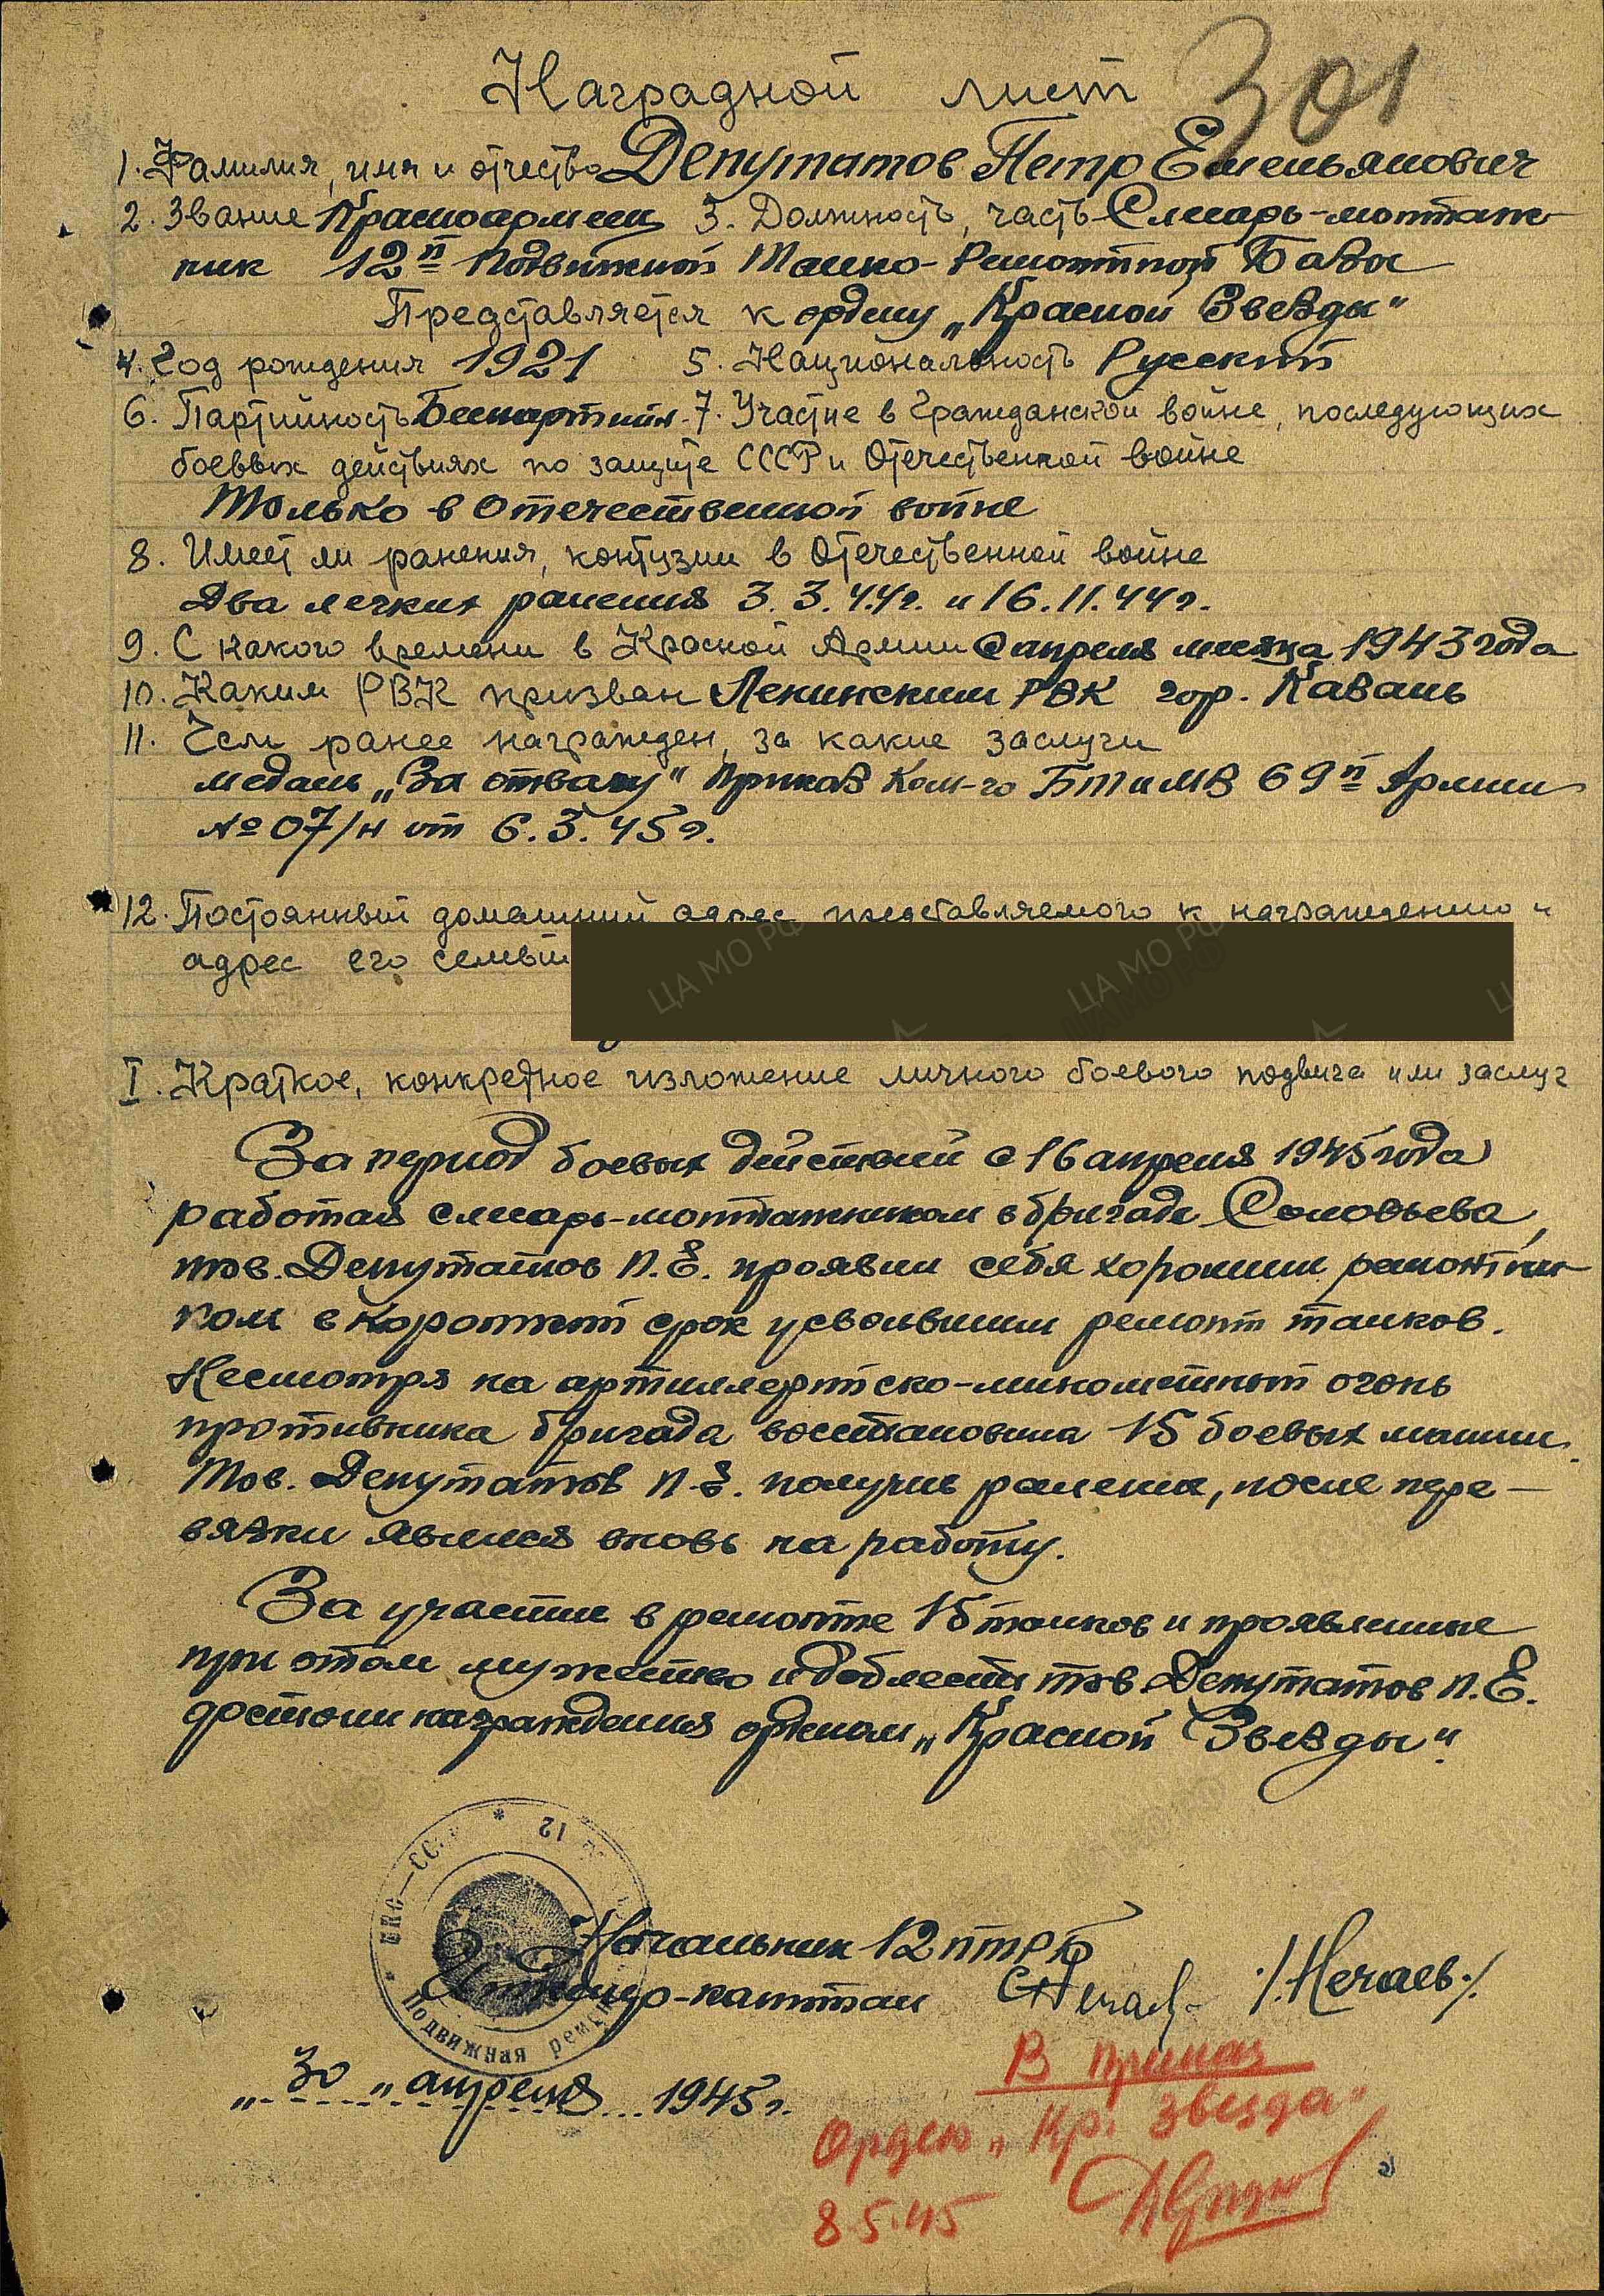 301
Наградной лист
1. Фамилия, имя и отчество Депутатов Петр Емельянович
2. Звание Красноармеец 3. Должность, часть Слесарь-монтаж-
ник 12й Подвижной Танко-Ремонтной Базы
Представляется к ордену „Красной Звезды"
4. Год рождения 1921 5. Национальность Русский
6. Партийность Беспартийн. 7. Участие в Гражданской войне, последующих
боевых действиях по защите СССР и Отечественной войне
Только в Отечественной войне
8. Имеет ли ранения, контузии в Отечественной войне
Два легких ранения 3.3.44г. и 16.11.44г.
9. С какого времени в Красной Армии С апреля месяца 1943 года
10. Каким РВК призван Ленинским РВК гор. Казань
11. Если ранее награжден, за какие заслуги
медаль „За отвагу" приказ Ком-го БТ и МВ 69й Армии
№ 07/н от 6.3.45г.
12. Постоянный домашний адрес представляемого к награждению и
адрес его семьи
I. Краткое, конкретное изложение личного боевого подвига или заслуг
За период боевых действий с 16 апреля 1945 года
работая слесарь-монтажником в бригаде Соловьева,
тов. Депутатов П.Е. проявил себя хорошим ремонтни-
ком в короткий срок усвоившим ремонт танков.
Несмотря на артиллерийско-минометный огонь
противника бригада восстановила 15 боевых машин.
Тов. Депутатов П.Е. получив ранение, после пере-
вязки явился вновь на работу.
За участие в ремонте 15 танков и проявленные
при этом мужество и доблесть тов. Депутатов П.Е.
достоин награждения орденом „Красной Звезды".
12
Подвижная
Начальник 12 ПТРБ
Инженер-капитан /Нечаев./
„30" апреля 1945г.
В приказ
Орден „Кр. Звезда"
8.5.45
ЦА МО РФ